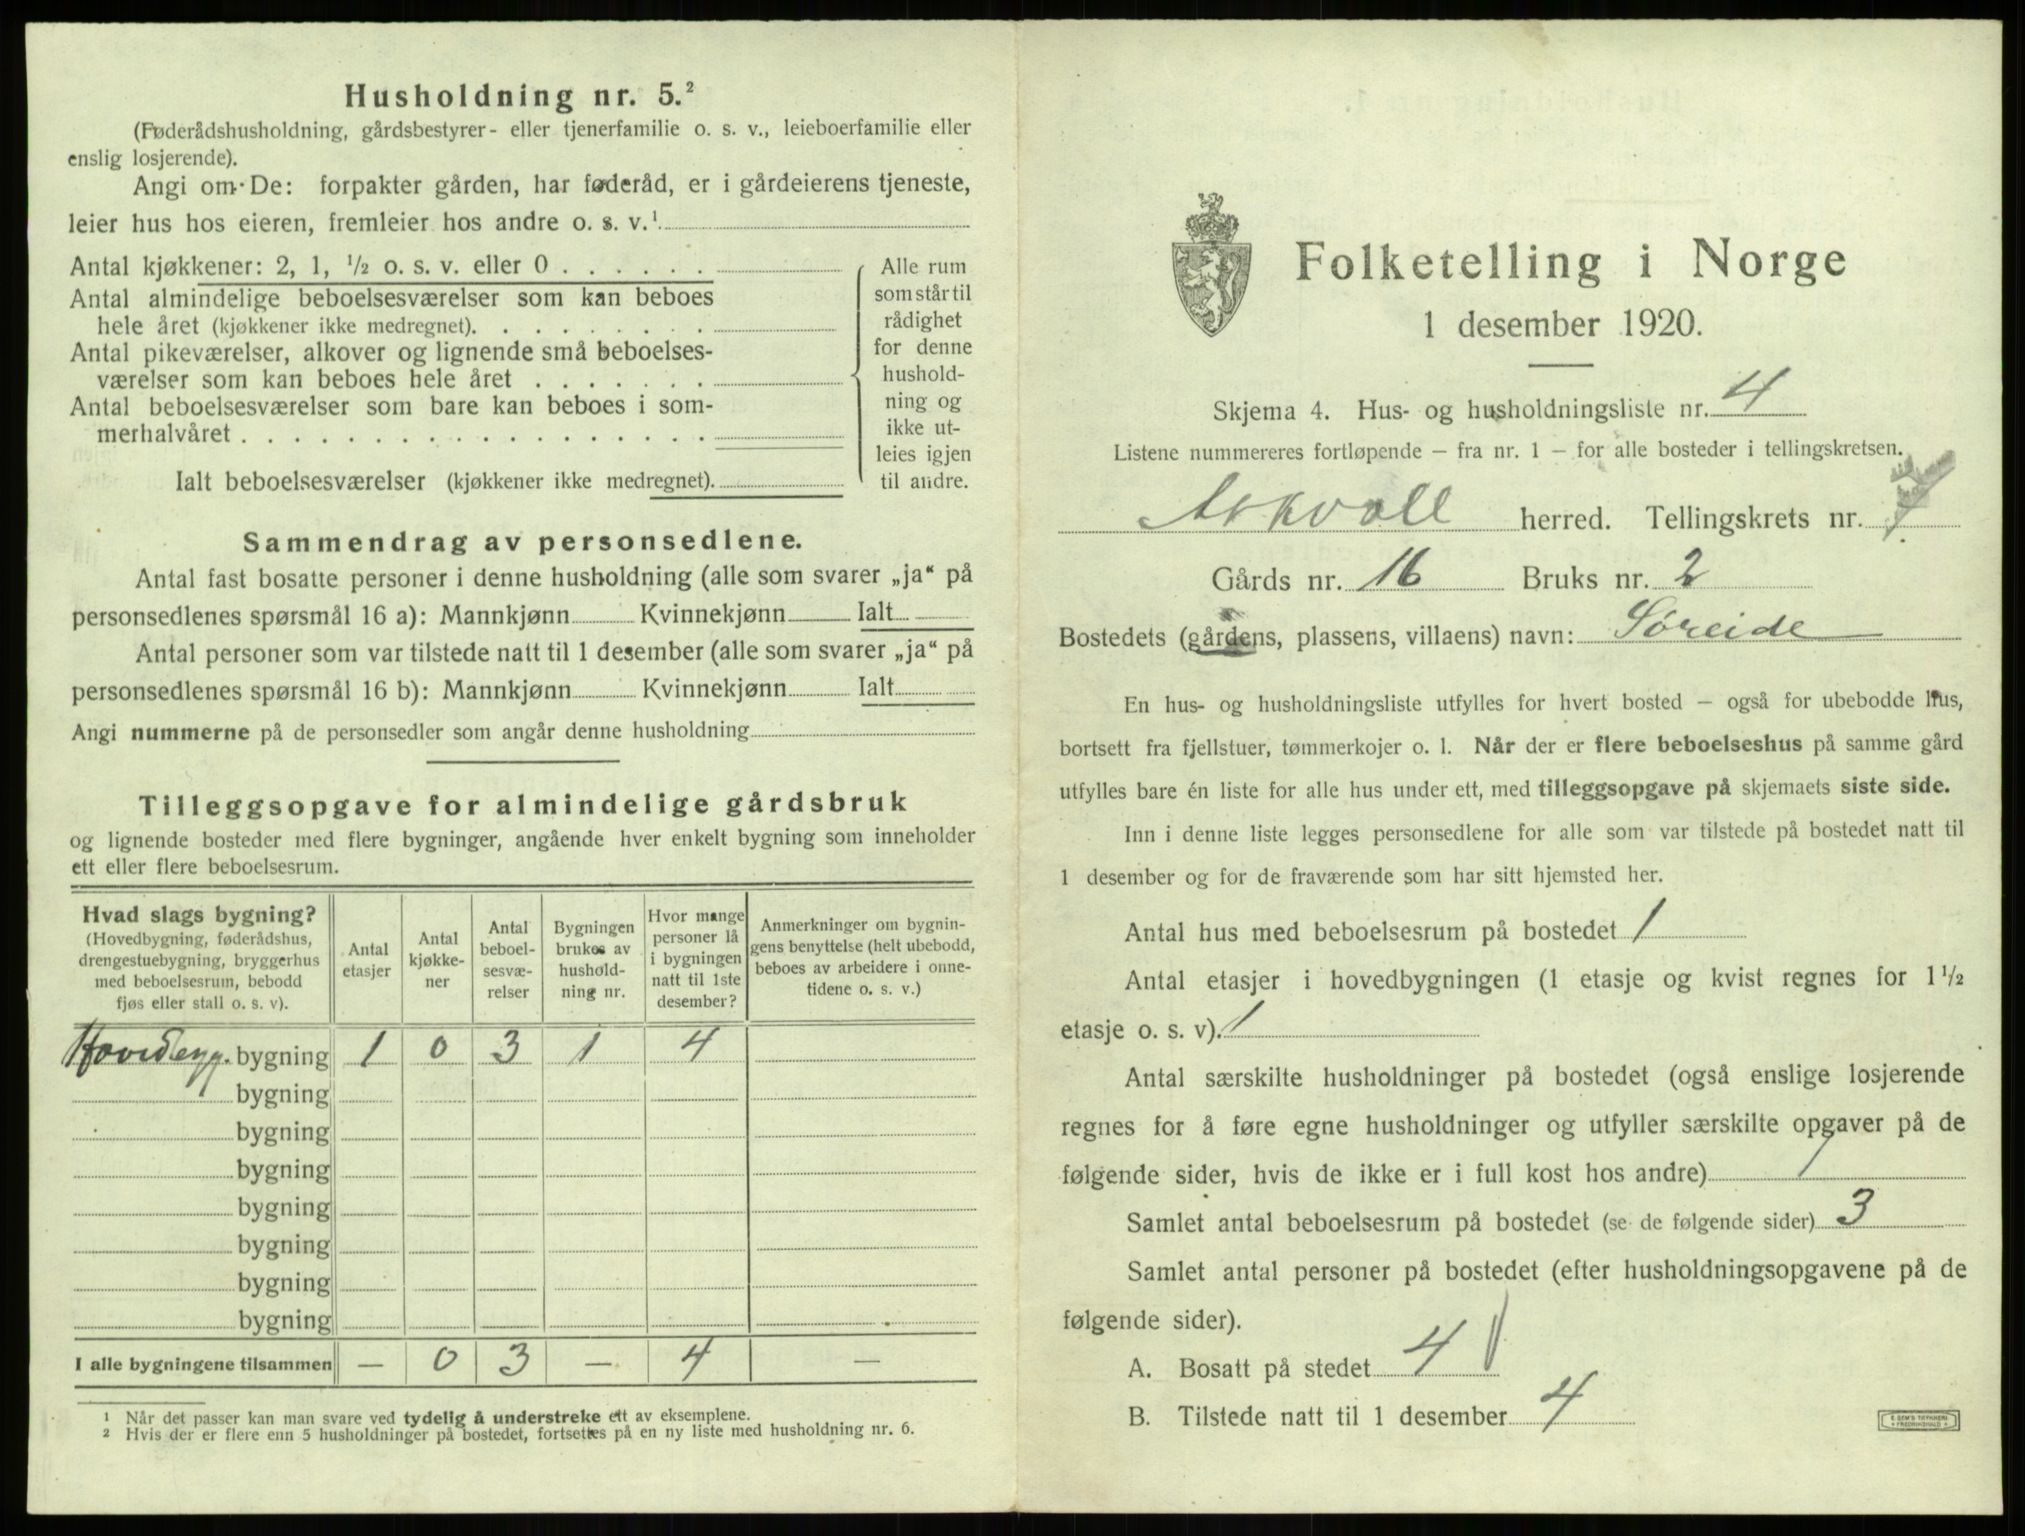 Husholdning nr. 5.²
(Føderådshusholdning, gårdsbestyrer- eller tjenerfamilie o. s. v., leieboerfamilie eller
enslig losjerende).
Angi om De: forpakter gården, har føderåd, er i gårdeierens tjeneste,
leier hus hos eieren, fremleier hos andre o. s. v.¹
Antal kjøkkener: 2, 1, ½ o. s. v. eller 0 . . . . . .
Antal almindelige beboelsesværelser som kan beboes
hele året (kjøkkener ikke medregnet). . . . . . . . .
Antal pikeværelser, alkover og lignende små beboelses-
værelser som kan beboes hele året . . . . . . .
Antal beboelsesværelser som bare kan beboes i som-
merhalvåret . . . . . . . . . . . . . . . . . .
Ialt beboelsesværelser (kjøkkener ikke medregnet).
Alle rum
som står til
rådighet
for denne
hushold-
ning og
ikke ut-
leies igjen
til andre.
Sammendrag av personsedlene.
Antal fast bosatte personer i denne husholdning (alle som svarer „ja“ på
personsedlenes spørsmål 16 a): Mannkjønn Kvinnekjønn Ialt
Antal personer som var tilstede natt til 1 desember (alle som svarer „ja“ på
personsedlenes spørsmål 16 b): Mannkjønn Kvinnekjønn Ialt
Angi nummerne på de personsedler som angår denne husholdning
Tilleggsopgave for almindelige gårdsbruk
og lignende bosteder med flere bygninger, angående hver enkelt bygning som inneholder
ett eller flere beboelsesrum.
Hvad slags bygning?
(Hovedbygning, føderådshus,
drengestuebygning, bryggerhus
med beboelsesrum, bebodd
fjøs eller stall o. s. v).
Antal
etasjer
Antal
kjøkke-
ner
Antal
beboel-
sesvæ-
relser
Bygningen
brukes av
hushold-
ning nr.
Hvor mange
personer lå
i bygningen
natt til 1ste
desember?
Anmerkninger om bygnin-
gens benyttelse (helt ubebodd,
beboes av arbeidere i onne-
tidene o. s. v.)
Hovedbygg. bygning 1 0 3 1 4
bygning
bygning
bygning
bygning
bygning
bygning
bygning
I alle bygningene tilsammen — 0 3 — 4 —
1 Når det passer kan man svare ved tydelig å understreke ett av eksemplene.
2 Hvis der er flere enn 5 husholdninger på bostedet, fortsettes på en ny liste med husholdning nr. 6.
Folketelling i Norge
1 desember 1920.
Skjema 4. Hus- og husholdningsliste nr. 4
Listene nummereres fortløpende – fra nr. 1 – for alle bosteder i tellingskretsen.
Askvoll herred. Tellingskrets nr. 7.
Gårds nr. 16 Bruks nr. 2
Bostedets (gårdens, plassens, villaens) navn: Søreide
En hus- og husholdningsliste utfylles for hvert bosted – også for ubebodde hus,
bortsett fra fjellstuer, tømmerkojer o. l. Når der er flere beboelseshus på samme gård
utfylles bare én liste for alle hus under ett, med tilleggsopgave på skjemaets siste side.
Inn i denne liste legges personsedlene for alle som var tilstede på bostedet natt til
1 desember og for de fraværende som har sitt hjemsted her.
Antal hus med beboelsesrum på bostedet 1
Antal etasjer i hovedbygningen (1 etasje og kvist regnes for 1 ½
etasje o. s. v). 1
Antal særskilte husholdninger på bostedet (også enslige losjerende
regnes for å føre egne husholdninger og utfyller særskilte opgaver på de
følgende sider, hvis de ikke er i full kost hos andre) 1
Samlet antal beboelsesrum på bostedet (se de følgende sider) 3
Samlet antal personer på bostedet (efter husholdningsopgavene på de
følgende sider).
A. Bosatt på stedet 4
B. Tilstede natt til 1 desember 4
E. SEM'S TRYKKERI
FREDRIKSHALD